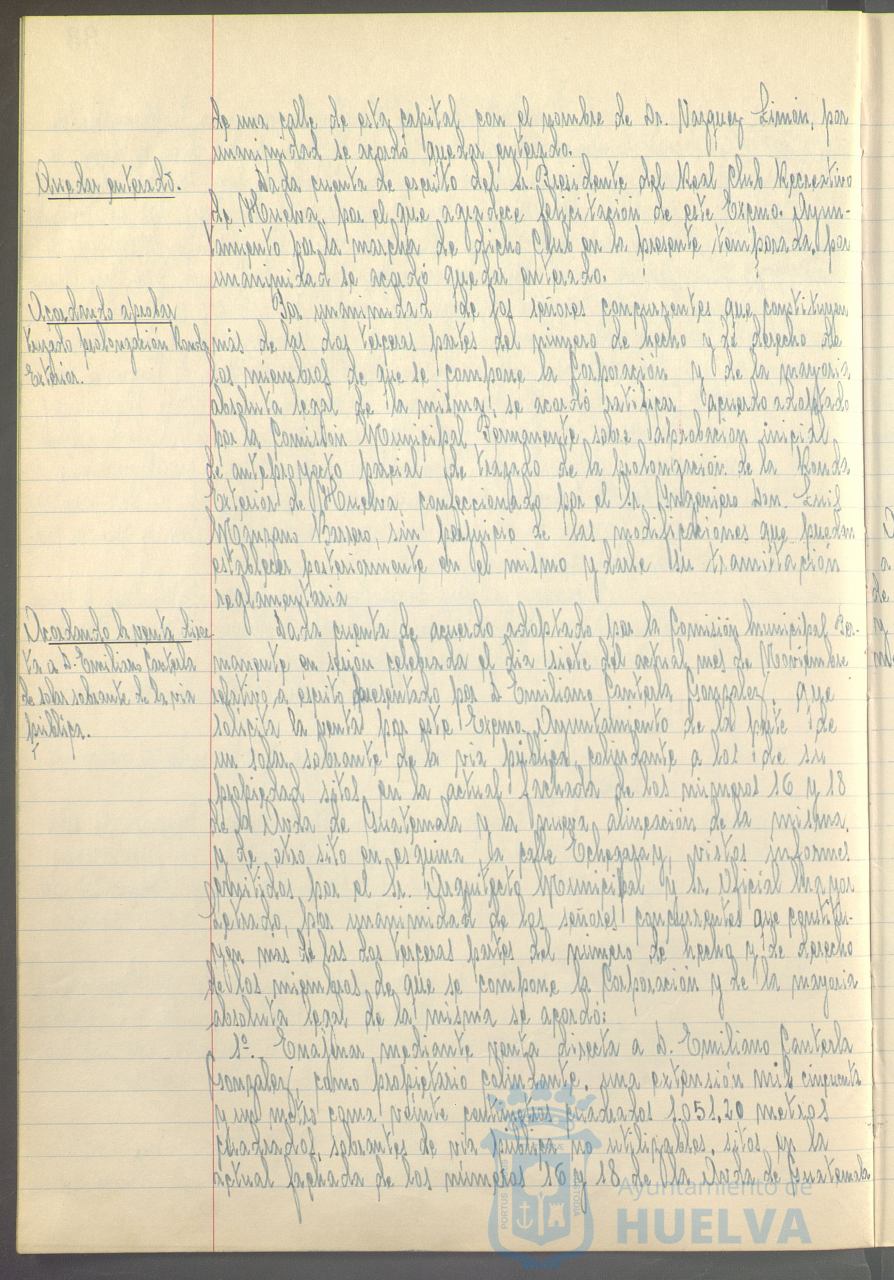 de una calle de esta capital con el nombre de Dr. Vazquez Limón, por
unanimidad se acordó quedar enterado.
Quedar enterado.
Dada cuenta de escrito del Sr. Presidente del Real Club Recreativo
de Huelva, por el que agradece felicitación de este Excmo. Ayun-
tamiento por la marcha de dicho Club en la presente temporada, por
unanimidad se acordó quedar enterado.
Acordando aprobar
trazado prolongación Ronda
Exterior.
Por unanimidad de los señores concurrentes que constituyen
más de las dos terceras partes del número de hecho y de derecho de
los miembros de que se compone la Corporación y de la mayoria
absoluta legal de la misma, se acordó ratificar acuerdo adoptado
por la Comisión Municipal Permanente sobre aprobación inicial
de anteproyecto parcial de trazado de la prolongación de la Ronda
Exterior de Huelva, confeccionado por el Sr. Ingeniero Don Luis
Manzano Barrero, sin perjuicio de las modificaciones que puedan
establecer posteriormente en el mismo y darle su tramitación
reglamentaria
Acordando la venta direc-
ta a D. Emiliano Canterla
de solar sobrante de la via
pública.
Dada cuenta de acuerdo adoptado por la Comisión Municipal Per-
manente en sesión celebrada el dia siete del actual mes de Noviembre
relativo a escrito presentado por D. Emiliano Canterla Gonzalez, que
solicita la venta por este Excmo. Ayuntamiento de la parte de
un solar sobrante de la via pública, colindante a los de su
propiedad sitos en la actual fachada de los números 16 y 18
de la Avda de Guatemala y la nueva alineación de la misma,
y de otro sito en esquina la calle Echegaray, vistos informes
emitidos por el Sr. Arquitecto Municipal y Sr. Oficial Mayor
Letrado, por unanimidad de los señores concurrentes que constitu-
yen mas de las dos terceras partes del número de hecho y de derecho
de los miembros de que se compone la Corporación y de la mayoria
absoluta legal de la misma se acordó:
1º. Enajenar mediante venta directa a D. Emiliano Canterla
Gonzalez, como propietario colindante, una extensión mil cincuenta
y un metro coma veinte centimetros cuadrados 1.051,20 metros
cuadrados, sobrantes de via pública no utilizables, sitos en la
actual fachada de los números 16 y 18 de la Avda de Guatemala
Ayuntamiento de
HUELVA